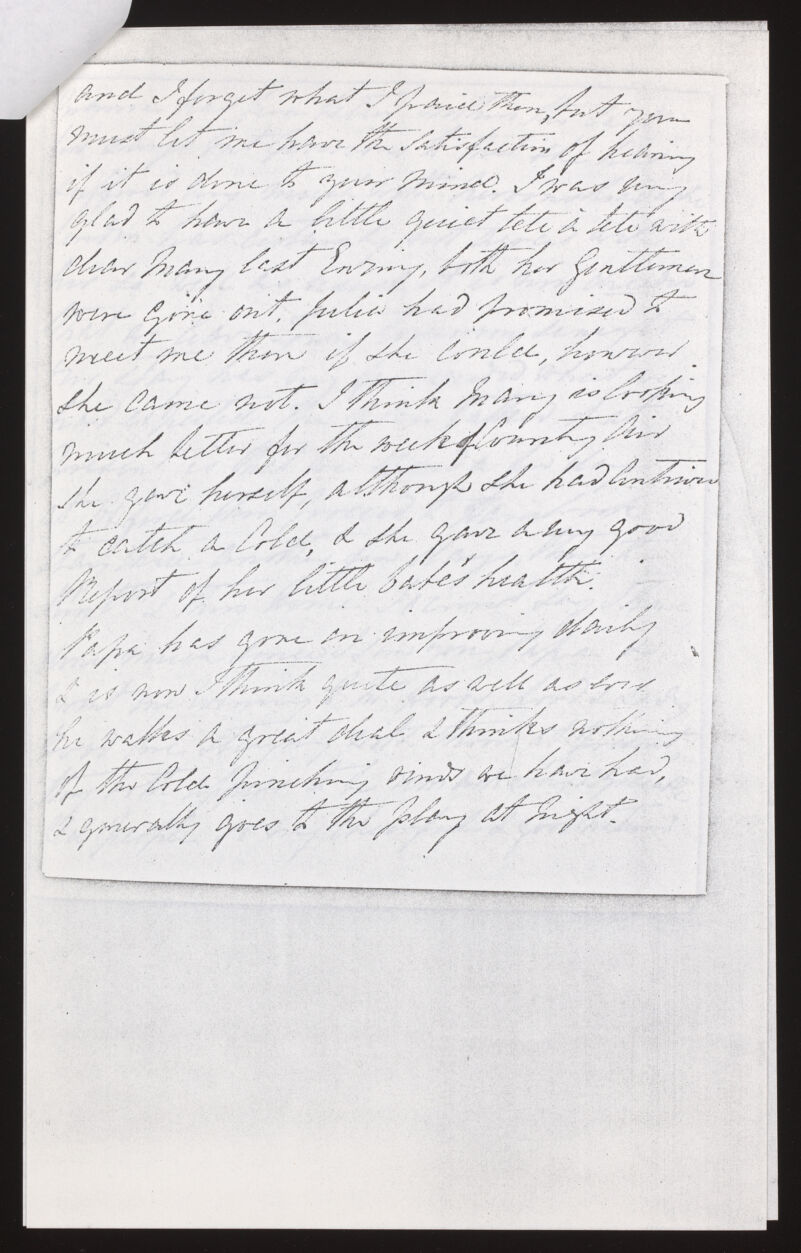 and I forget what I paid then, but you
must let me have the Satisfaction of hearing
if it is done to your mind. I was very
glad to have a little quiet tete a tete with
dear Mary last Evening, both her Gentlemen
were gone out. Julia had promised to
meet me there if she could, however
she came not. I think Mary is looking
much better for the week of Country Air
she gave herself, although she had Contrived
to catch a Cold, & she gave a very good
Report of her little babe's health.
Papa has gone on improving daily
& is now I think quite as well as ever
he walks a great deal & thinks nothing
of the Cold pinching winds we have had,
& generally goes to the play at Night.